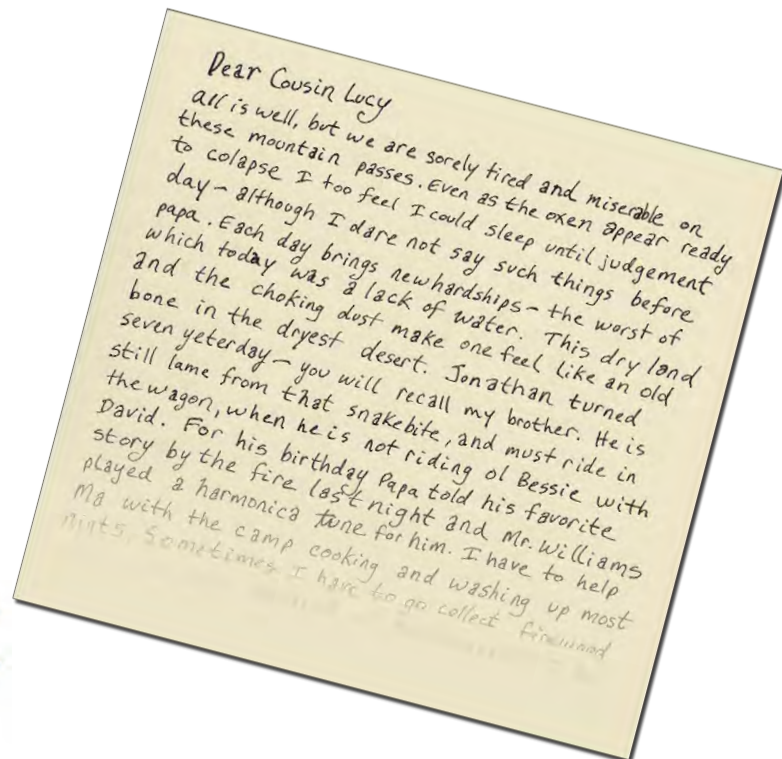 Dear Cousin Lucy
all is well, but we are sorely tired and miserable on
these mountain passes. Even as the oxen appear ready
to colapse I too feel I could sleep until judgement
day - although I dare not say such things before
papa. Each day brings new hardships - the worst of
which today was a lack of water. This dry land
and the choking dust make one feel like an old
bone in the dryest desert. Jonathan turned
seven yeterday - you will recall my brother. He is
still lame from that snakebite, and must ride in
the wagon, when he is not riding ol Bessie with
David. For his birthday Papa told his favorite
story by the fire last night and Mr. Williams
played a harmonica tune for him. I have to help
Ma with the camp cooking and washing up most
nights. Sometimes I have to go collect firewood